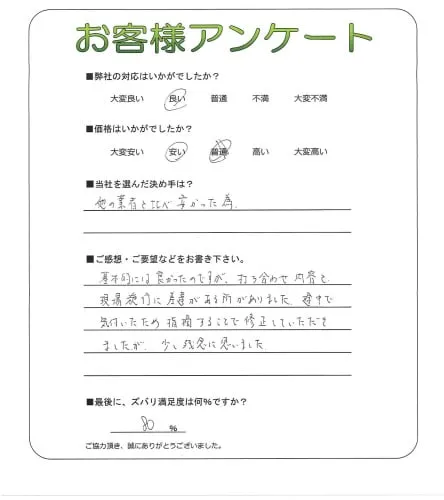 お客様アンケート
■弊社の対応はいかがでしたか?
大変良い 良い 普通 不満 大変不満
■価格はいかがでしたか?
大変安い 安い 普通 高い 大変高い
■当社を選んだ決め手は?
他の業者と比べ安かった為
■ご感想・ご要望などをお書き下さい。
基本的には良かったのですが、打ち合わせ内容と
現場施行に差違がある所がありました 途中で
気付いたため 指摘することで修正していただき
ましたが、少し残念に思いました
■最後に、ズバリ満足度は何%ですか?
80 %
ご協力頂き、誠にありがとうございました。